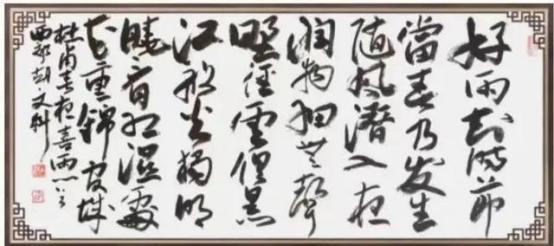 好雨知時節
當春乃發生
隨風潛入夜
潤物細無聲
野徑雲俱黑
江船火獨明
曉看紅濕處
花重錦官城
杜甫春夜喜雨
文科